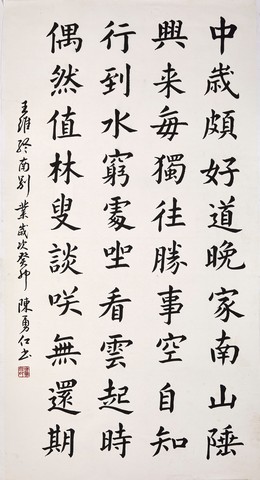 中歳頗好道晚家南山陲
興来每獨往勝事空自知
行到水窮處坐看雲起時
偶然值林叟談咲無還期
王維終南別業歲次癸卯陳勇仁书